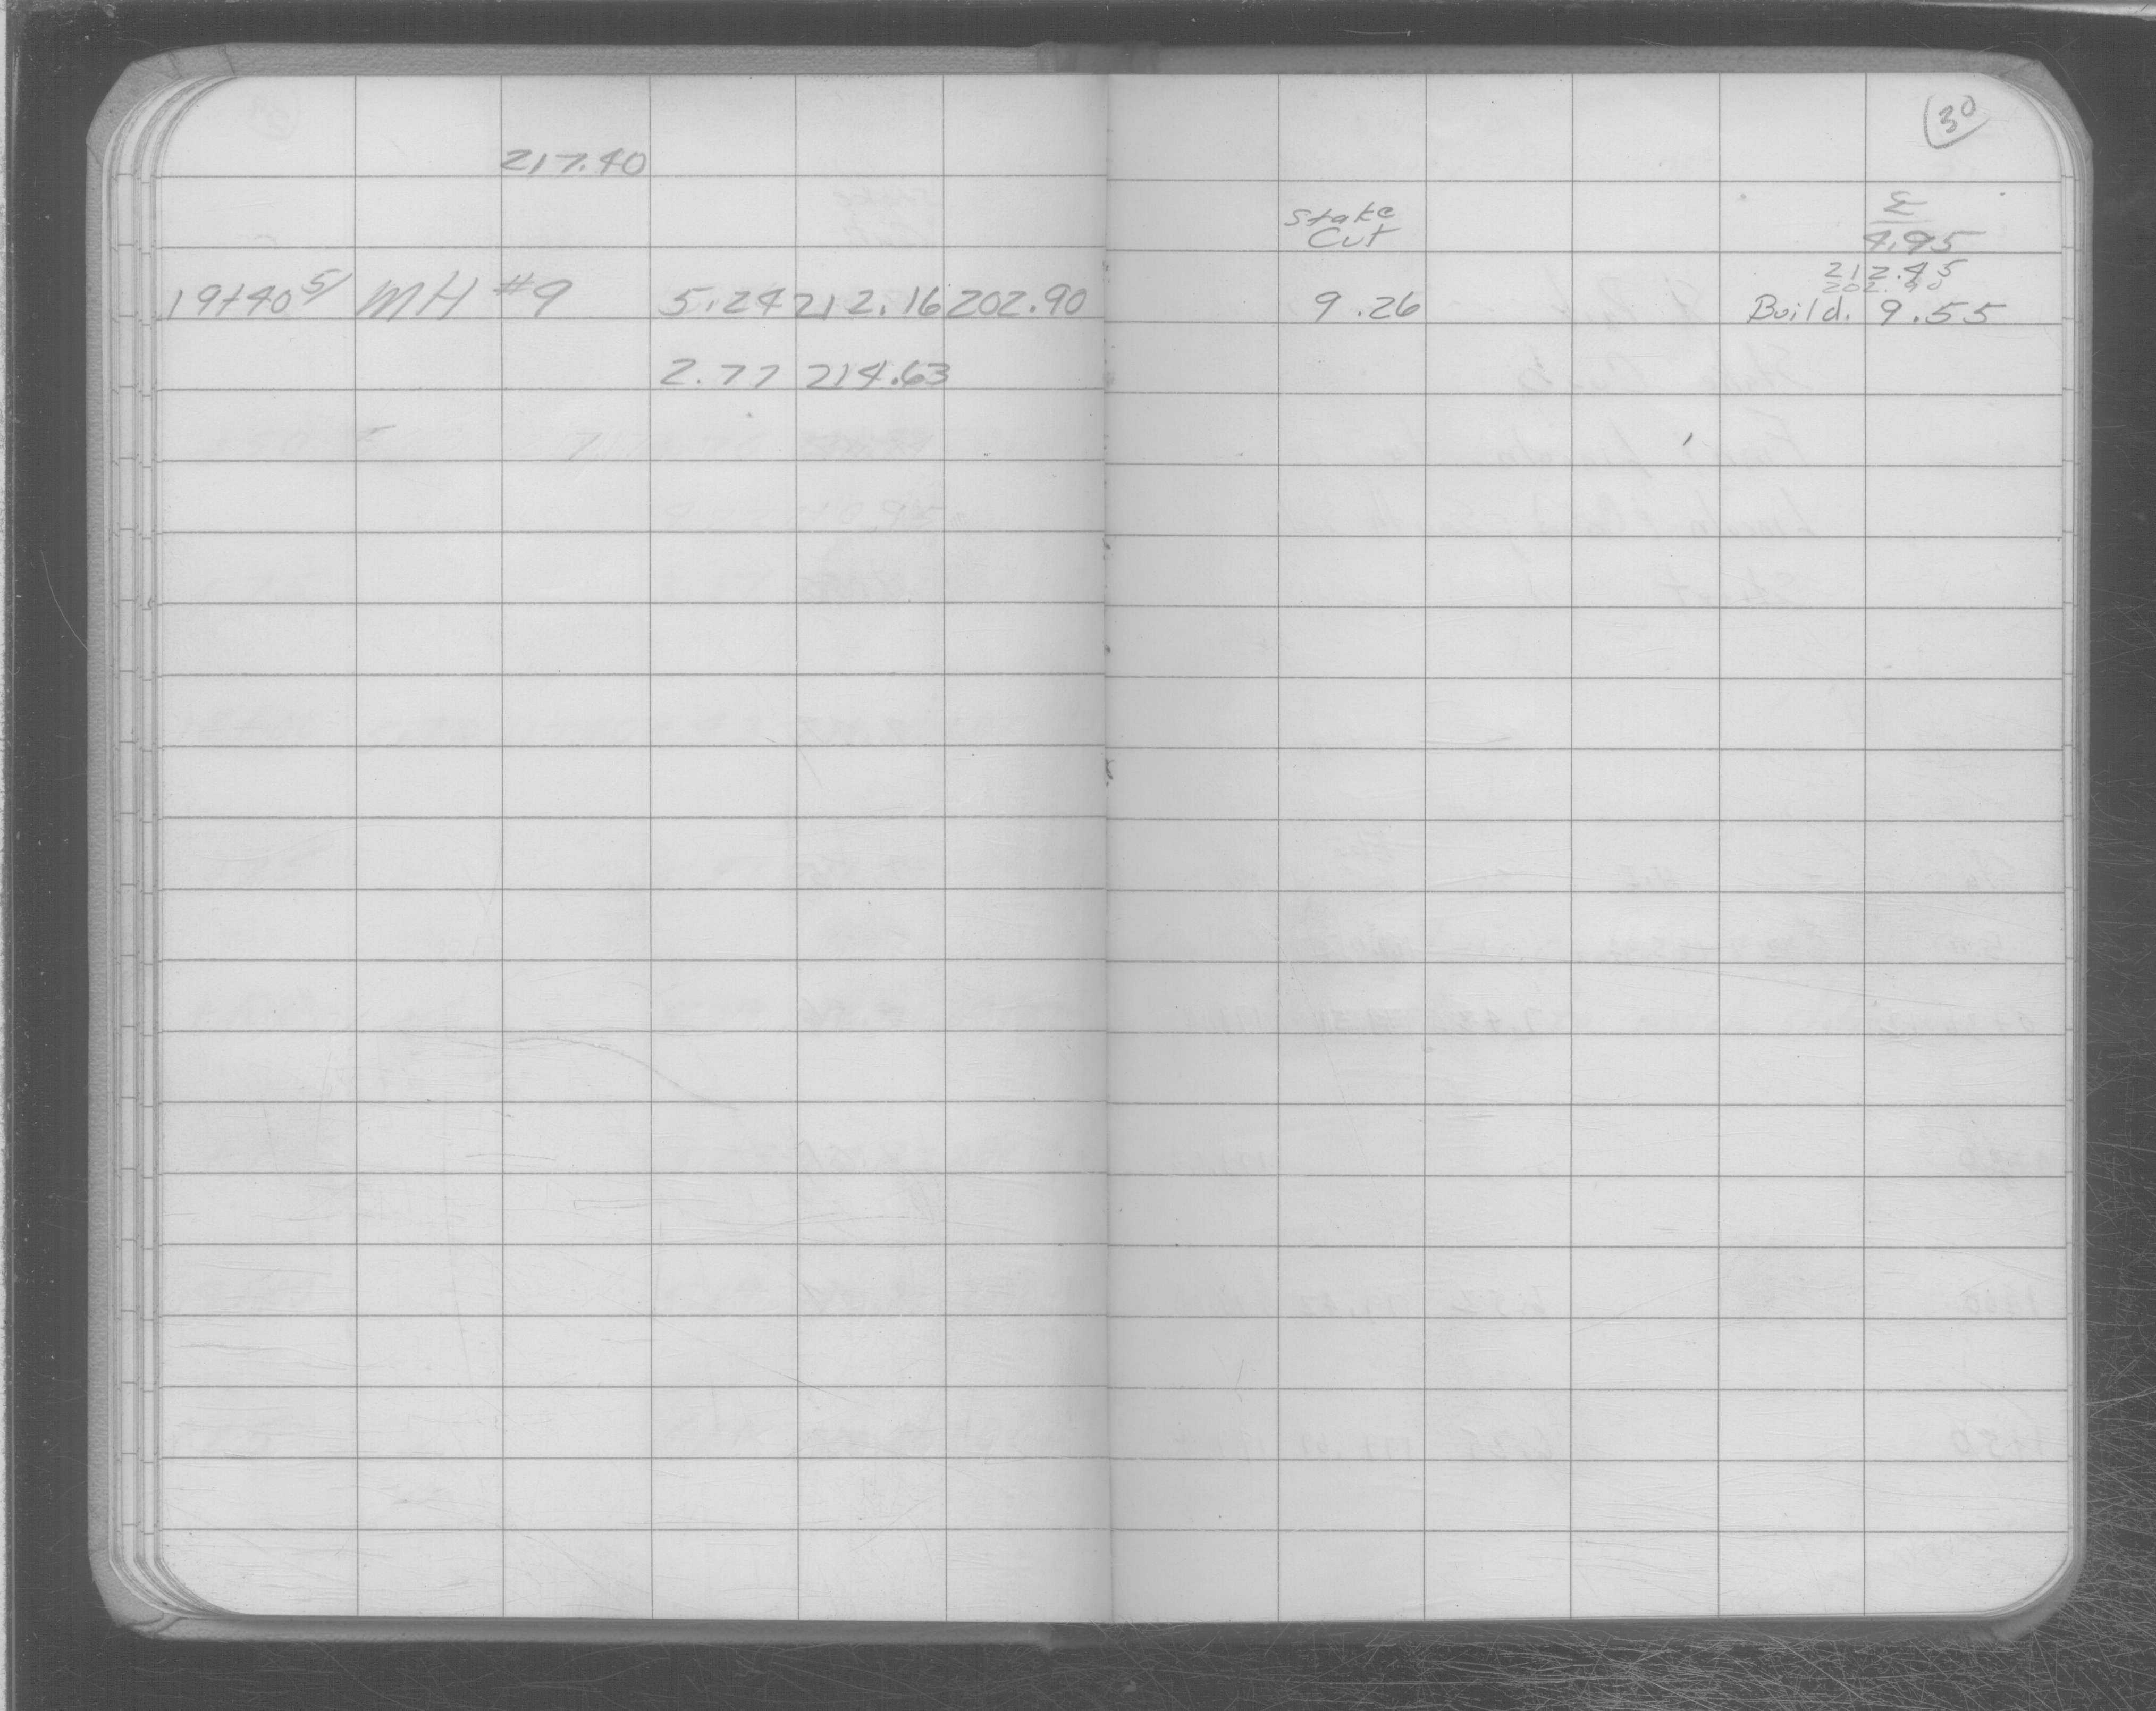 30
217.40
Stake
Cut
Σ
4.95
212.45
202.90
19+40 51 MH #9 5.24 212.16 202.90 9.26 Build. 9.55
2.77 214.63